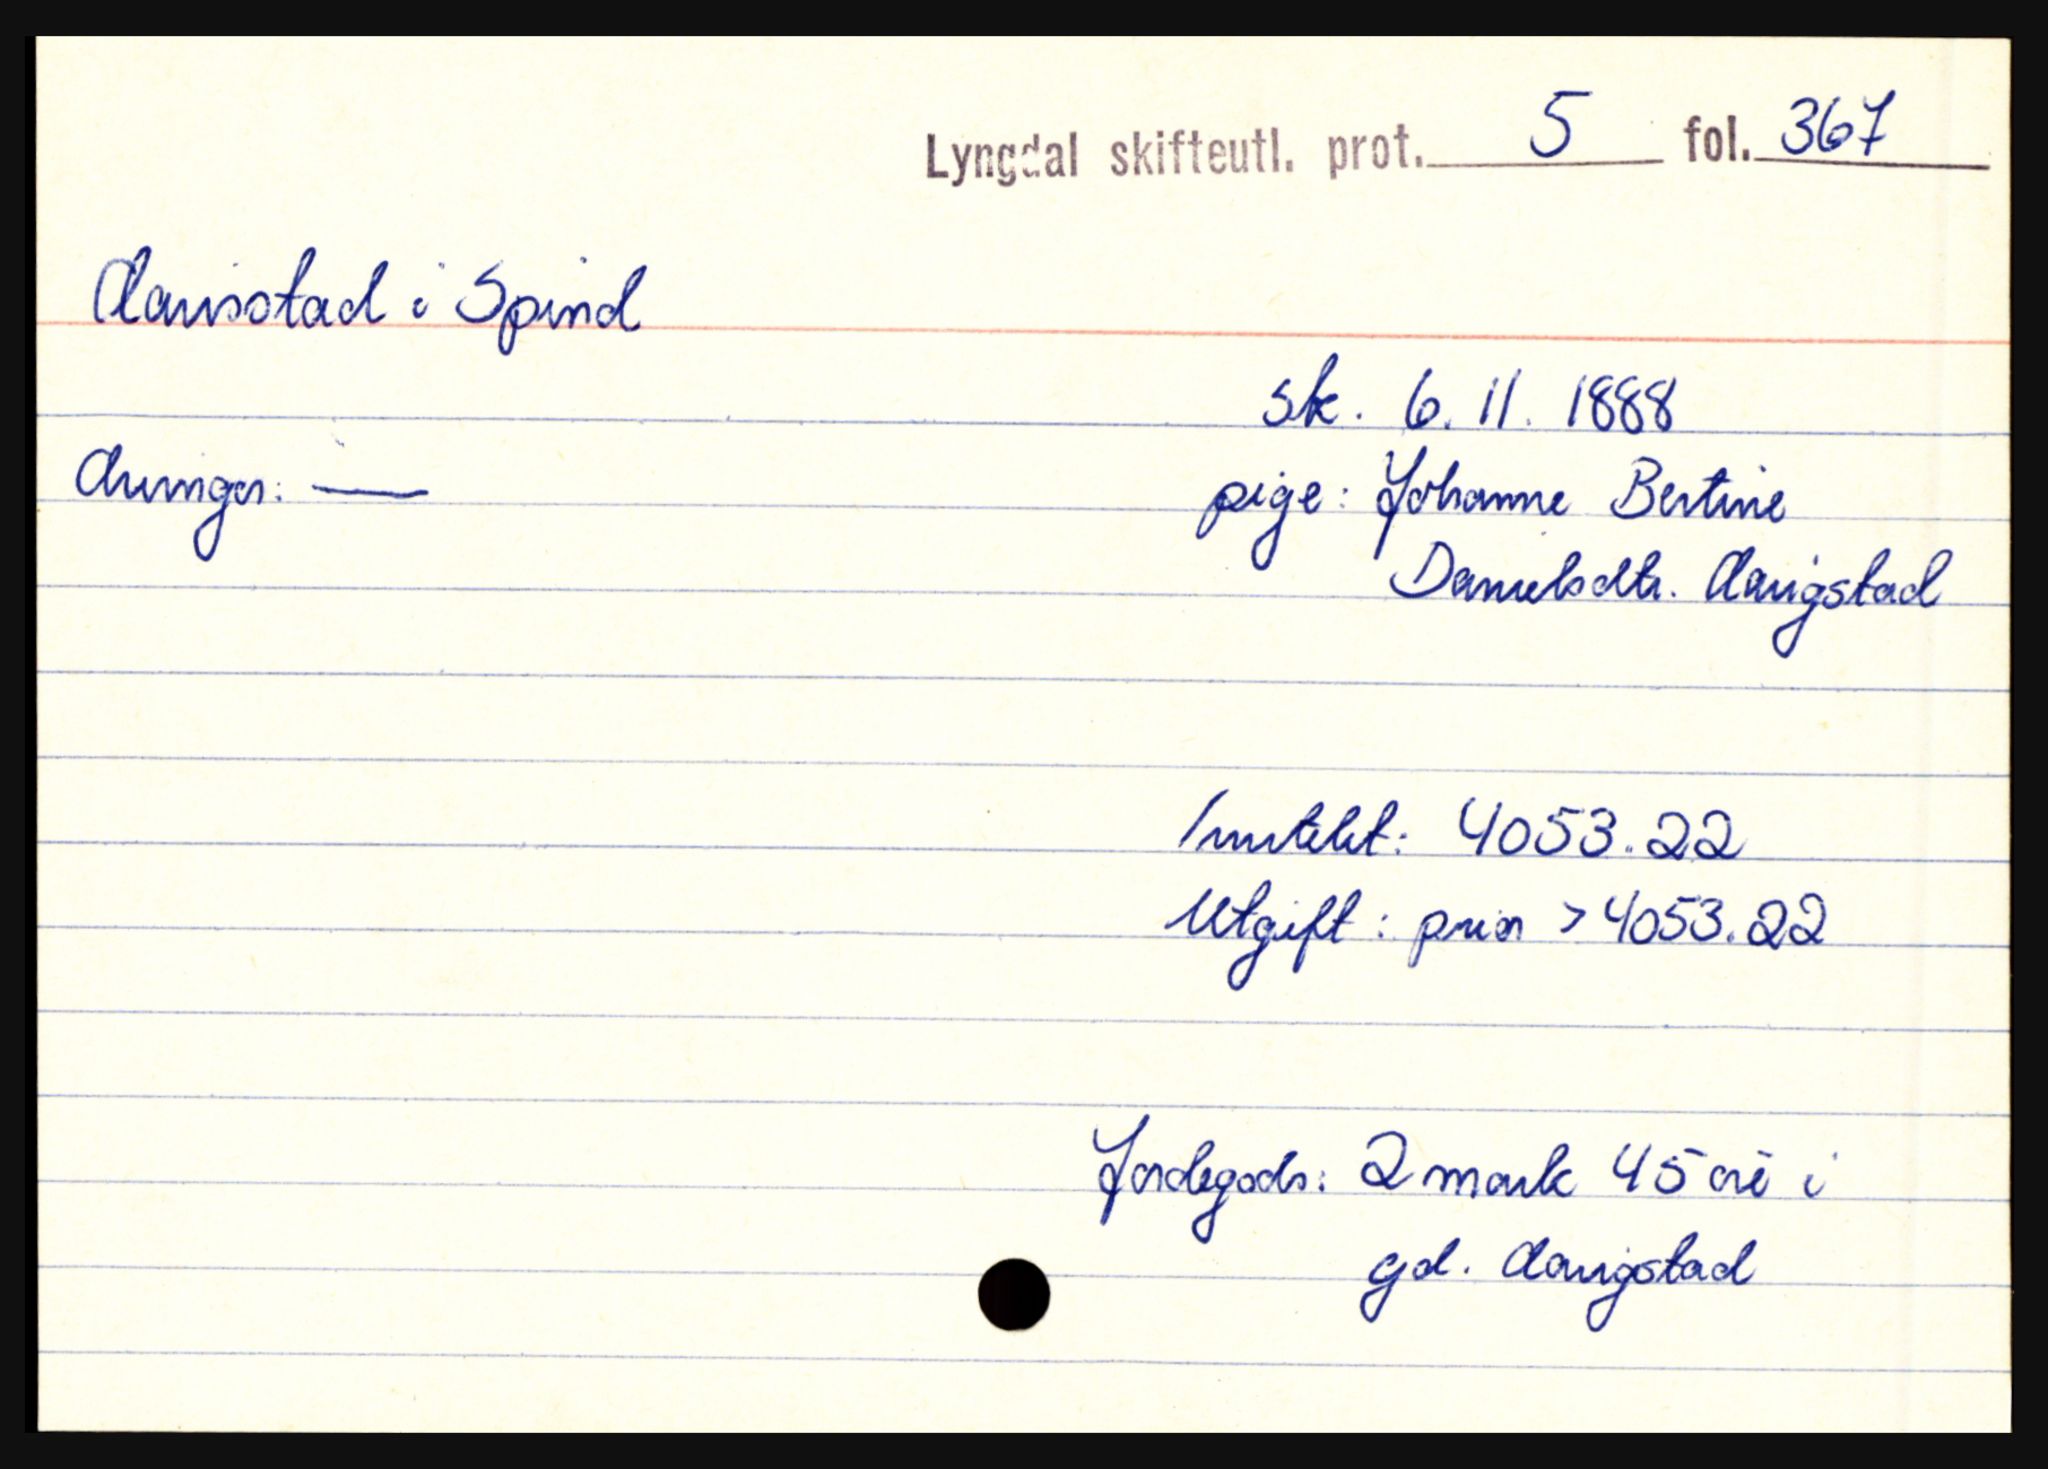 Lyngdal skifteutl. prot. 5 fol. 367
Aarisstad i Spind
sk. 6. 11. 1888
Arvinger: —
pige: Johanne Bertine
Danielsdtr. Aarigstad
Inntekt: 4053.22
Utgift: prior > 4053.22
Jordegods: 2 mark 45 øre i
gd. Aarigstad